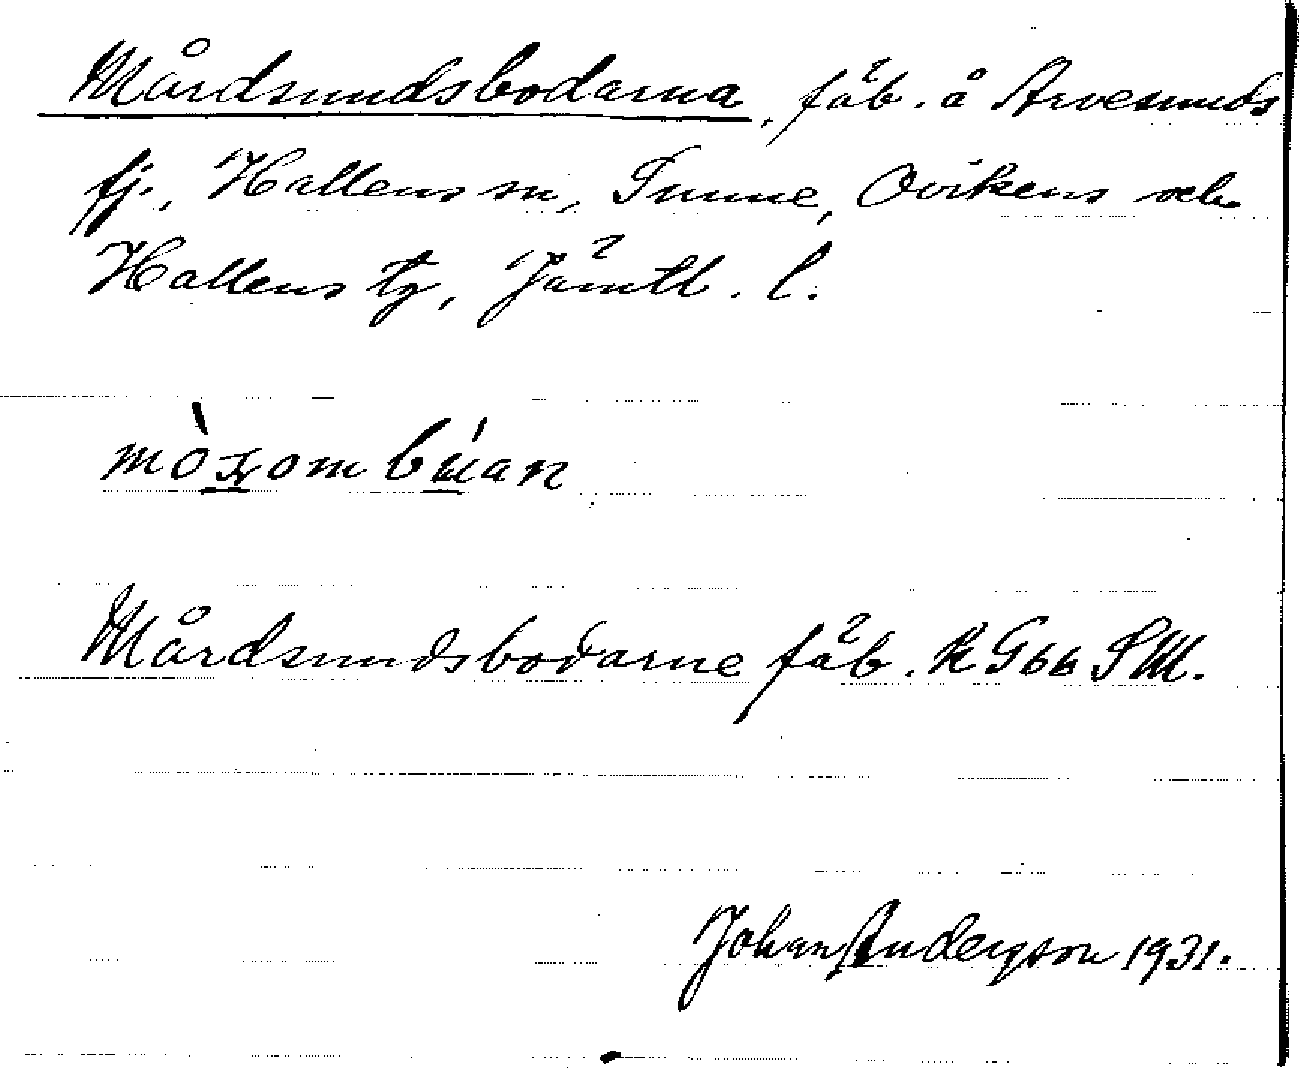 Mårdsundsbodarna, fäb. å Arvesunds
fj., Hallens sn, Sunne, Ovikens och
Hallens tg, Jämtl. l.
Mårdsundsbodarne fäb. R G 66 SM.
Johan Anderzson 1931.